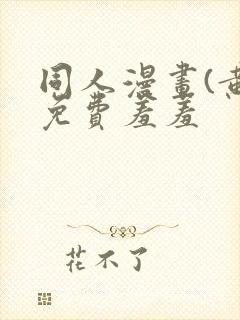 同人漫畫(黄
免費羞羞
花不了